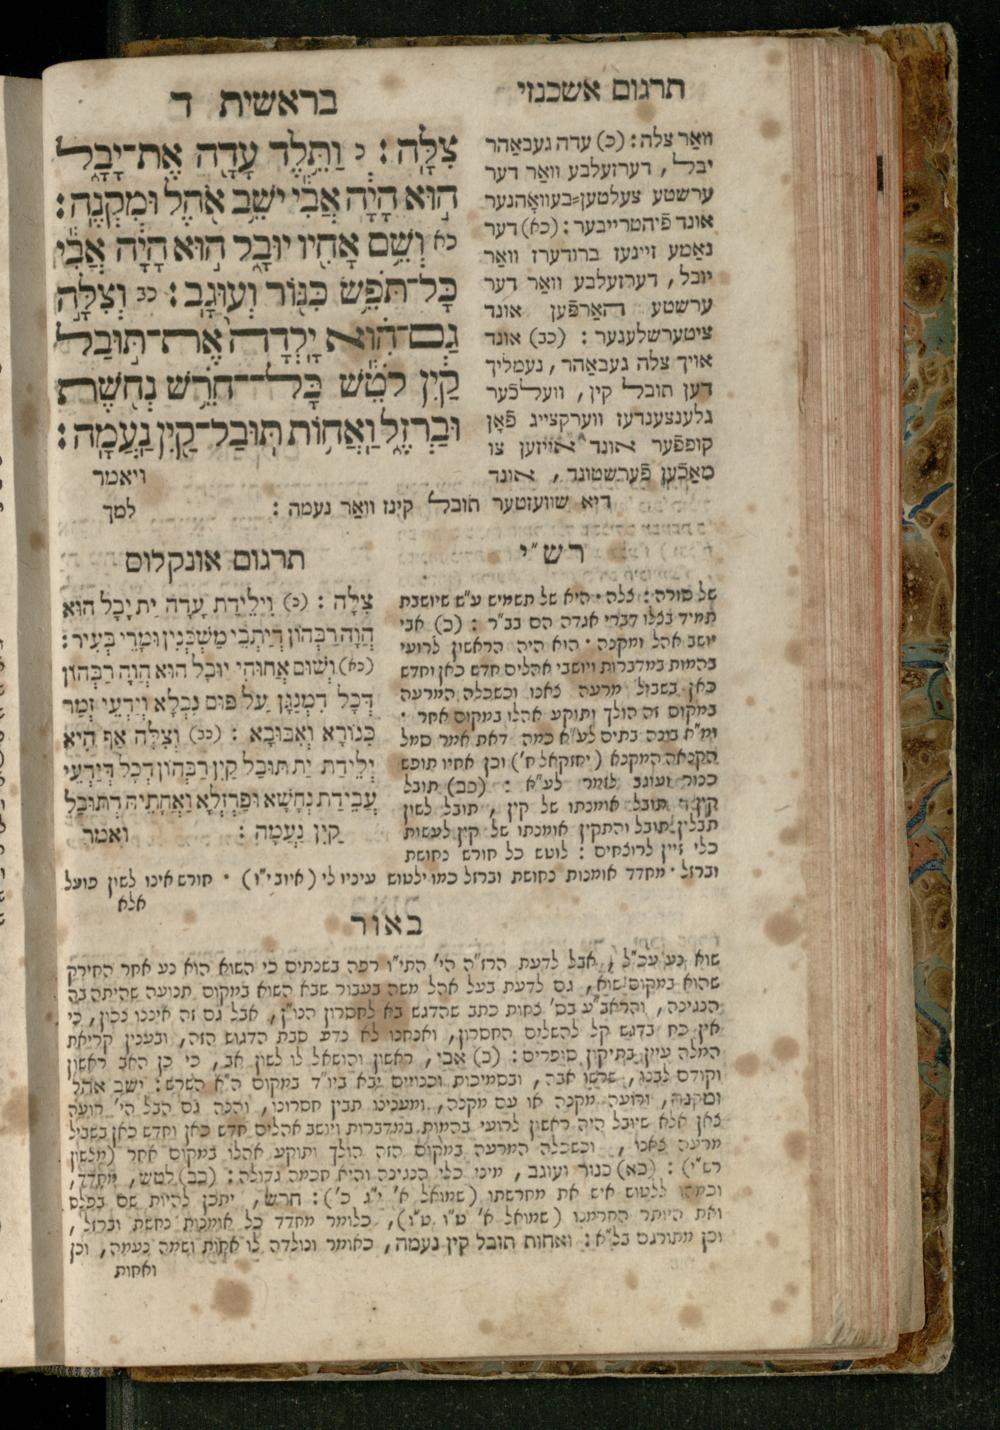 תרגום אשכנזי
בראשית ד
צִלָּה: כ וַתֵּלֶד עָדָה אֶת־יָבָל
הוּא הָיָה אֲבִי יֹשֵׁב אֹהֶל וּמִקְנֶה:
כא וְשֵׁם אָחִיו יוּבָל הוּא הָיָה אֲבִי
כָּל־תֹּפֵשׂ כִּנּוֹר וְעוּגָב: כב וְצִלָּה
גַם־הִוא יָלְדָה אֶת־תּוּבַל
קַיִן לֹטֵשׁ כָּל־חֹרֵשׁ נְחֹשֶׁת
וּבַרְזֶל וַאֲחוֹת תּוּבַל־קַיִן נַעֲמָה:
ויאמר
למך
וואַר צלה: (כ) עדה געבאַהר
יבל, דערזעלבע וואַר דער
ערשטע צעלטען=בעוואָהנער
אונד פֿיהטרייבער: (כא) דער
נאַמע זיינעז ברודערז וואַר
יובל, דערזעלבע וואַר דער
ערשטע האַרפֿען אונד
ציטערשלעגער: (כב) אונד
אויך צלה געבאַהר, נעמליך
דען תובל קין, וועלכער
גלענצענדעז ווערקצייג פֿאָן
קופפֿער אונד אייזען צו
מאַכען פֿערשטונד, אונד
דיא שוועזטער תובל קינז וואַר נעמה:
רש"י
של מורה: צלה. היא של תשמיש ע"ש שיושבת
תמיד בצלו דברי אגדה הם בב"ר: (כ) אבי
יושב אהל ומקנה. הוא היה הראשון לרועי
בהמות במדברות ויושבי אהלים חדש כאן וחדש
כאן בשביל מרעה צאנו וכשכלה המרעה
במקום זה הולך ותוקע אהלו במקום אחר.
וי"א בונה בתים לע"א כמה דאת אמר סמל
הקנאה המקנה (יחזקאל ח') וכן אחיו תופש
כנור ועוגב לזמר לע"א: (כב) תובל
קין. תובל אומנתו של קין, תובל לשון
תבלין תובל והתקין אומנתו של קין לעשות
כלי זיין לרוצחים: לוטש כל חורש נחושת
וברזל. מחדד אומנות נחושת וברזל כמו ילטוש עיניו לי (איוב י"ו). חורש אינו לשון פועל
אלא
תרגום אונקלוס
צִלָּה: (כ) וִילֵידַת עָדָה יַת יָבָל הוּא
הֲוָה רַבְּהוֹן דְּיָתְבֵי מַשְׁכְּנִין וּמָרֵי בְעִיר:
(כא) וְשׁוּם אֲחוּהִי יוּבָל הוּא הֲוָה רַבְּהוֹן
דְּכָל דִּמְנַגֵּן עַל פּוּם נִבְלָא יָדְעֵי זְמַר
כִּנּוֹרָא וְאַבּוּבָא: (כב) וְצִלָּה אַף הִיא
יְלֵידַת יַת תּוּבַל קַיִן רַבְּהוֹן דְּכָל דְּיָדְעֵי
עֲבִידַת נְחָשָׁא וּפַרְזְלָא וַאֲחָתֵיהּ דְתוּבַל
קַיִן נַעֲמָה:
ואמר
באור
שוא נע עכ"ל, אבל לדעת הרז"ה הי' התי"ו רפה בשנתים כי השוא הוא נע אחר החירק
שהוא במקום שוא, גם לדעת בעל אהל משה בעבור שבא השוא במקום תנועה שהיתה בה
הנגינה, והראב"ע בס' צחות כתב שהדגש בא לחסרון הנו"ן, אבל גם זה איננו נכון, כי
אין כח בדגש קל להשלים החסרון, ואנחנו לא נדע סבת הדגוש הזה, ובענין קריאת
המלה עיין בתיקון סופרים: (כ) אבי, ראשון והושאל לו לשון אב, כי כן האב ראשון
וקודם לבנו, שרשו אבה, ובסמיכות וכנויים יבא ביו"ד במקום ה"א השרש: ישב אהל
ומקנה, ורועה מקנה או עם מקנה, ומענינו תבין חסרונו, והנה גם הבל הי' רועה
צאן אלא שיובל היה ראשון לרועי בהמות במדברות ויושב אהלים חדש כאן וחדש כאן בשביל
מרעה צאנו, וכשכלה המרעה במקום הזה הולך ותוקע אהלו במקום אחר (מלשון
רש"י): (כא) כנור ועוגב, מיני כלי הנגינה והיא חכמה גדולה: (כב) לטש, מחדד,
וכמהו ללטוש איש את מחרשתו (שמואל א' י"ג כ'): חרש, יתכן להיות שם בפלס
ואת היותר החרמנו (שמואל א' ט"ו ט"ו), כלומר מחדד כל אומנות נחשת וברזל,
וכן מתורגם בל"א: ואחות תובל קין נעמה, כאומר ונולדה לו אחות ושמה נעמה, וכן
ואחות